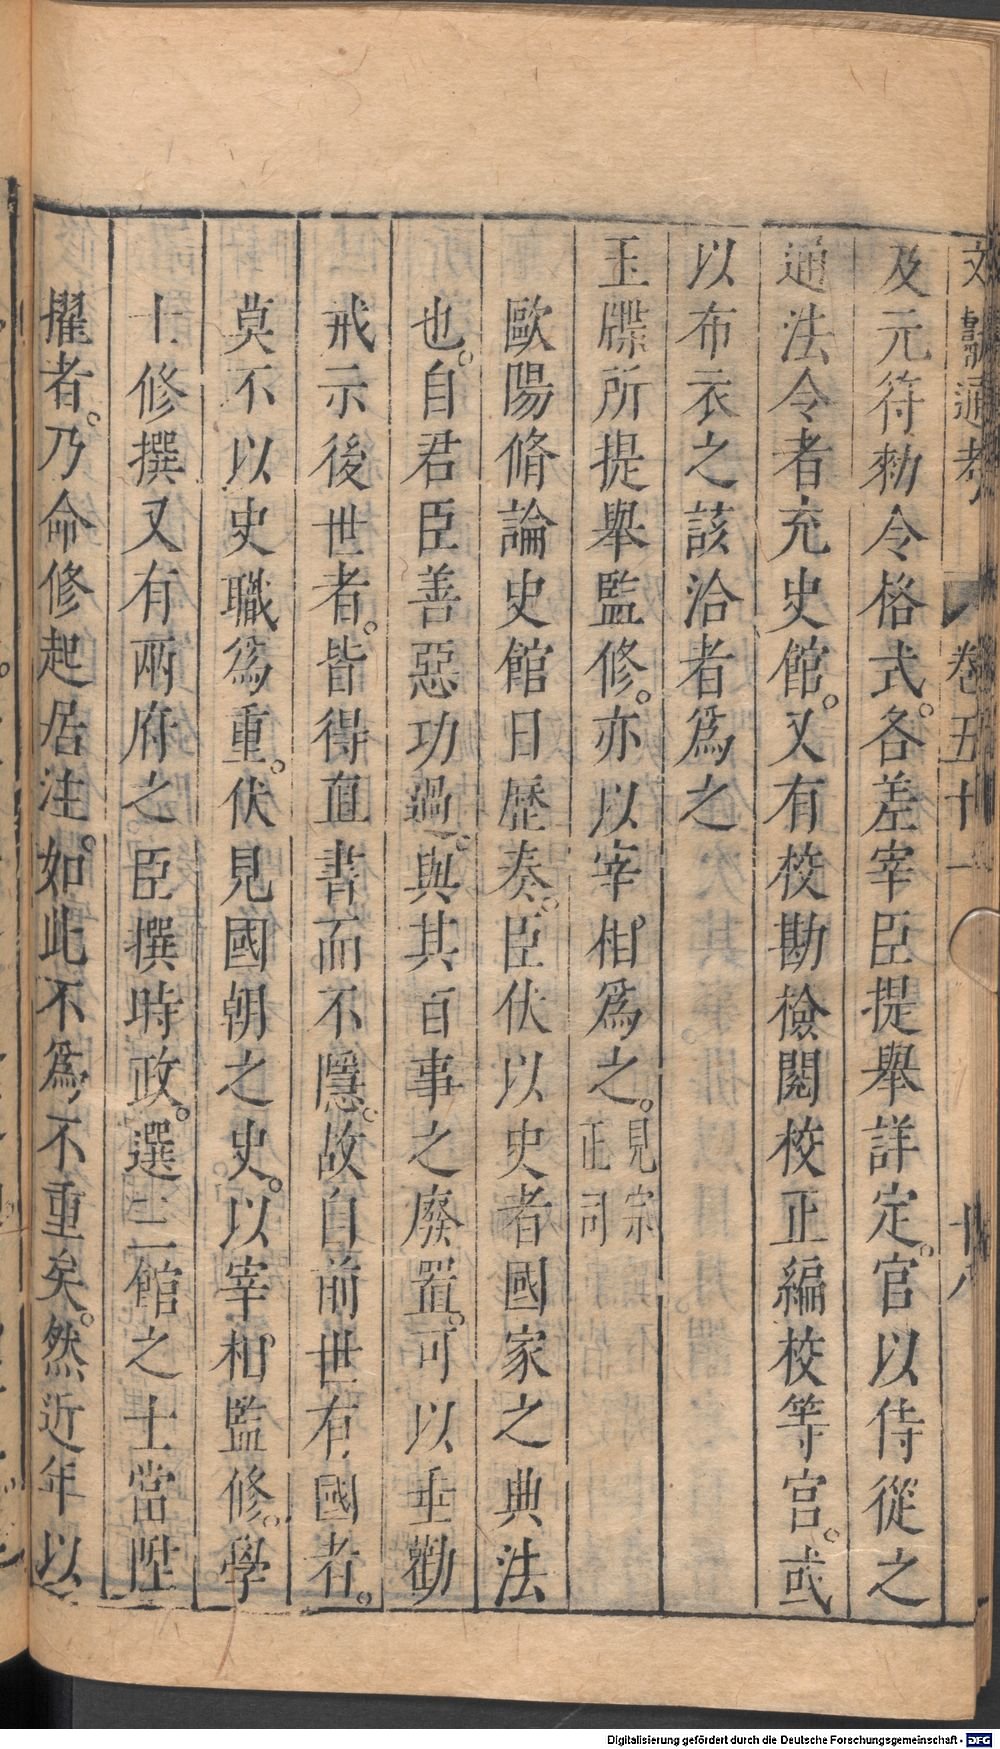 文獻通考 卷五十一 十八
及元符勑令格式。各差宰臣提舉詳定。官以侍從之
通法令者充史館。又有校勘檢閱校正編校等官。或
以布衣之該洽者爲之
玉牒所提舉監修。亦以宰相爲之。見宗正司
歐陽脩論史館日歷奏。臣伏以史者國家之典法
也。自君臣善惡功過。與其百事之廢置。可以垂勸
戒示後世者。皆得直書而不隱。故自前世有國者。
莫不以史職爲重。伏見國朝之史。以宰相監修。學
士修撰又有兩府之臣撰時政。選三館之士當陞
擢者。乃命修起居注。如此不爲不重矣。然近年以
Digitalisierung gefördert durch die Deutsche Forschungsgemeinschaft - DFG